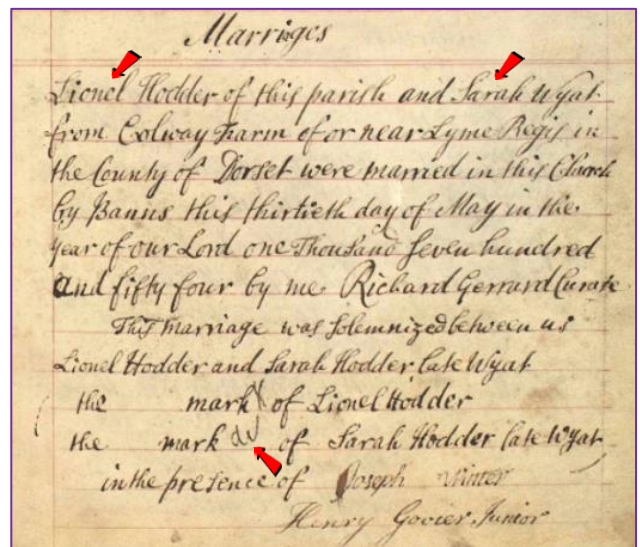 Marriges
Lionel Hodder of this parish and Sarah Wyat
from Colway Farm of or near Lyme Regis in
the County of Dorset were married in this Church
by Banns this thirtieth day of May in the
year of our Lord one Thousand Seven hundred
and fifty four by me Richard Gerrard Curate
This marriage was Solemnized between us
Lionel Hodder and Sarah Hodder late Wyat
the mark X of Lionel Hodder
the mark of Sarah Hodder late Wyat
in the presence of Joseph Winter
Henry Goveer Junior